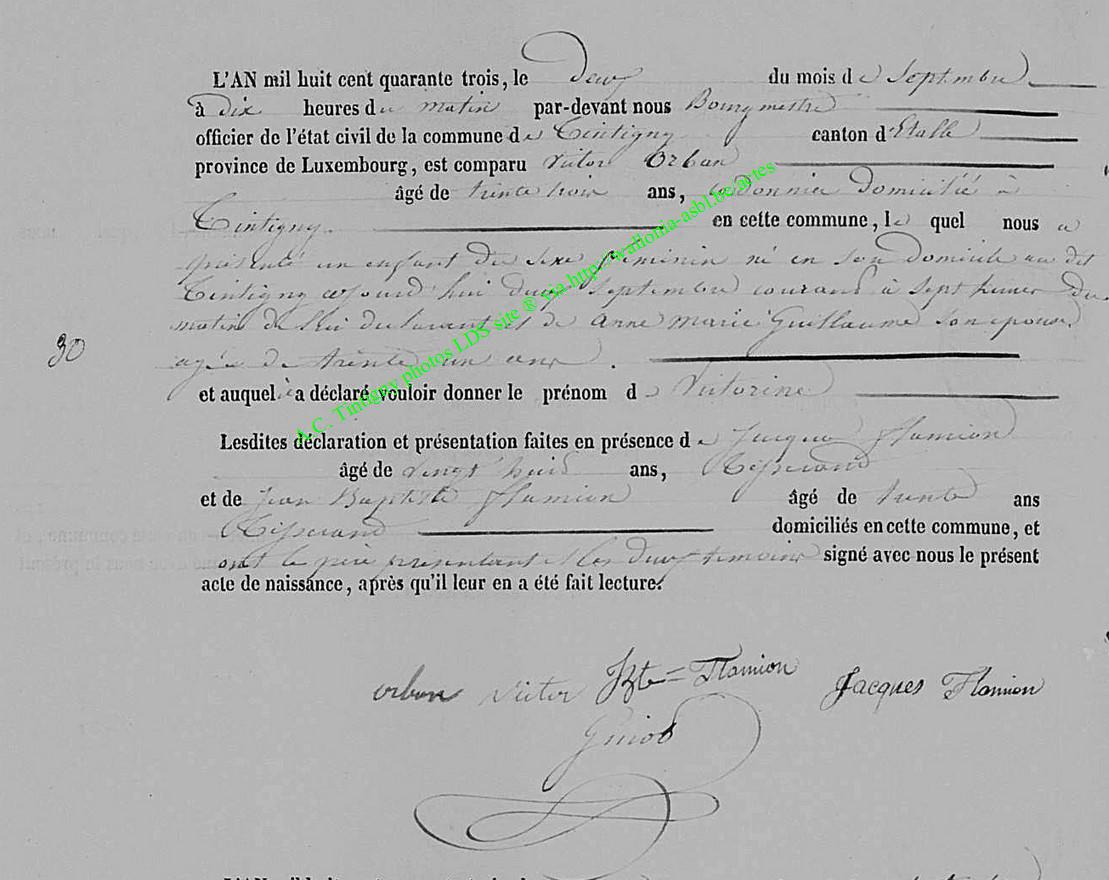 L'AN mil huit cent quarante trois, le Deux du mois de Septembre
à Dix heures du matin par-devant nous Bourgmestre
officier de l'état civil de la commune de Tintigny canton d'Etalle
province de Luxembourg, est comparu Victor Orban
âgé de trente trois ans, cordonnier Domicilié à
Tintigny. en cette commune, le quel nous a
présenté un enfant du sexe féminin né en son Domicile au dit
Tintigny cejourd'hui deux Septembre courant à Sept heures du
matin de lui déclarant et de Anne Marie Guillaume son épouse,
30 agée de trente un ans.
et auquel il a déclaré vouloir donner le prénom de Victorine
Lesdites déclaration et présentation faites en présence de Jacques Flamion
âgé de vingt huit ans, Tisserand
et de Jean Baptiste Flamion âgé de trente ans
Tisserand domiciliés en cette commune, et
ont le père présentant et les deux témoins signé avec nous le présent
acte de naissance, après qu'il leur en a été fait lecture.
orban Victor JBte=Flamion Jacques Flamion
Guiot
A.C. Tintigny photos LDS site ® via http://wallonia-asbl.be/actes